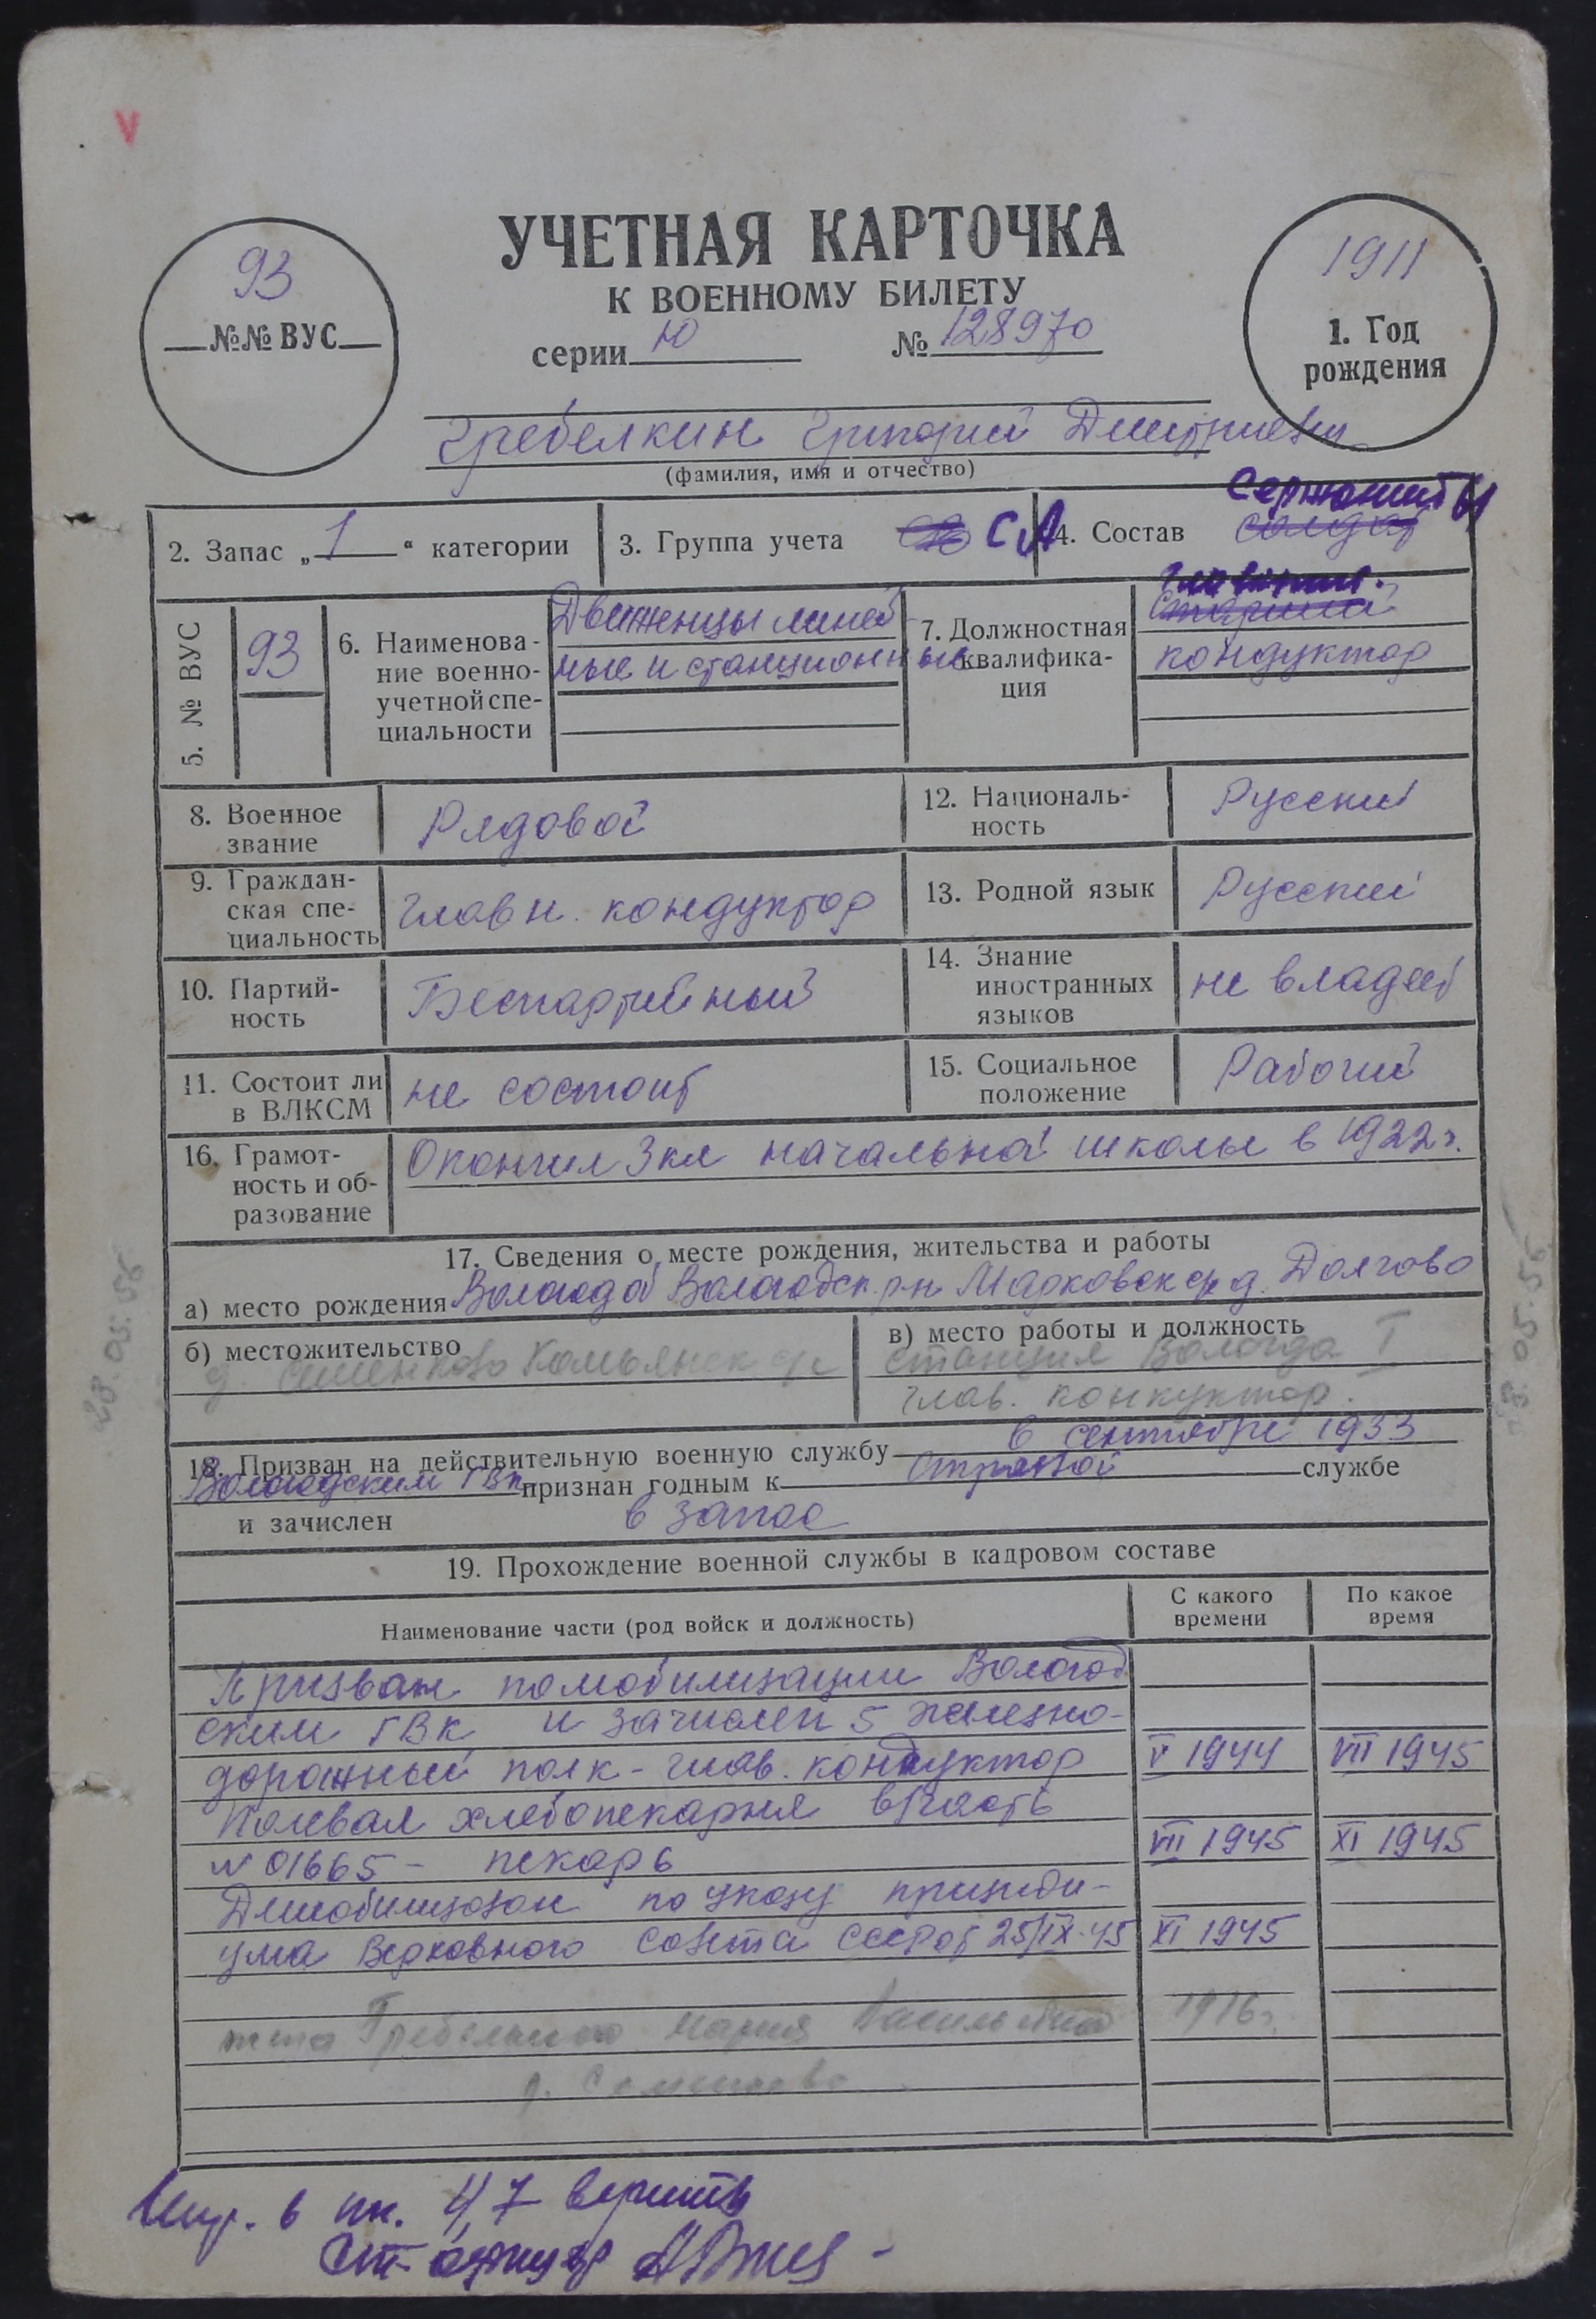 V
УЧЕТНАЯ КАРТОЧКА
К ВОЕННОМУ БИЛЕТУ
серии Ю № 128970
93
№№ ВУС
1911
1. Год
рождения
Гребелкин Григорий Дмитриевич
(фамилия, имя и отчество)
2. Запас „1“ категории
3. Группа учета СА
4. Состав солдат Сержанты
5. № ВУС 93
6. Наименова-
ние военно-
учетной спе-
циальности
Движенцы линей
ные и станционные
7. Должностная
квалифика-
ция
старший
кондуктор
8. Военное
звание
Рядовой
12. Националь-
ность
Русский
9. Граждан-
ская спе-
циальность
главн. кондуктор
13. Родной язык
Русский
10. Партий-
ность
Беспартийный
14. Знание
иностранных
языков
не владеет
11. Состоит ли
в ВЛКСМ
не состоит
15. Социальное
положение
Рабочий
16. Грамот-
ность и об-
разование
Окончил 3 кл начальной школы в 1922 г.
17. Сведения о месте рождения, жительства и работы
а) место рождения Вологод об Вологодск. р-н Марковск с/с д. Долгово
б) местожительство
д. Семенково
в) место работы и должность
станция Вологда I
глав. конкуктор.
18. Призван на действительную военную службу в сентябре 1933
Вологодским ГВк признан годным к строевой службе
и зачислен в запас
19. Прохождение военной службы в кадровом составе
Наименование части (род войск и должность)
С какого
времени
По какое
время
Призван по мобилизации Вологод
ским ГВК и зачислен 5 железно-
дорожный полк - глав. кондуктор V 1944 VII 1945
Полевая хлебопекарня в/часть
№ 01665 - пекарь VII 1945 XI 1945
Демобилизован по указу президи-
ума Верховного Совета СССР от 25/IX-45 XI 1945
жена Гребелкина Мария Васильевна 1916 г.
д. Семенково
28.05.55
Испр. в пн. 4,7 верить